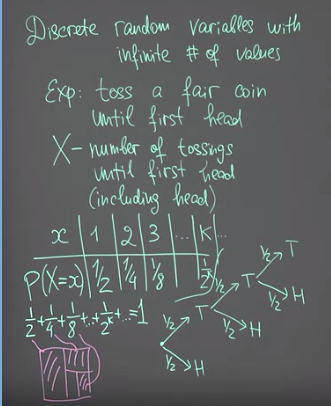 Discrete random variables with
infinite # of values
Exp: toss a fair coin
until first head
X - number of tossings
until first head
(including head)
x | 1 | 2 | 3 | ... | K | ...
P(X=x) | 1/2 | 1/4 | 1/8 | | 1/2^k
1/2 + 1/4 + 1/8 + ... + 1/2^k + ... = 1
1/2 T
1/2 T
1/2 H
1/2 T
1/2 H
1/2 H